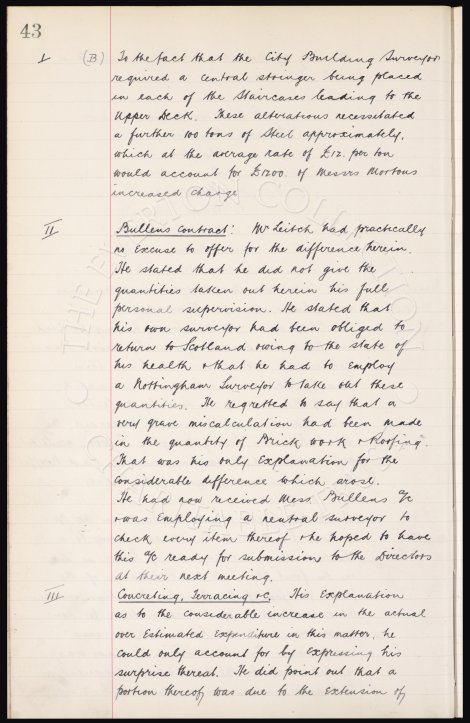 43
I (B) To the fact that the City Building Surveyor
required a central stringer being placed
in each of the Staircases leading to the
Upper Deck. These alterations necessitated
a further 100 tons of Steel approximately,
which at the average rate of £12. per ton
would account for £1200. of Messrs Mortons
increased charge
II Bullens Contract: Mr Leitch had practically
no Excuse to offer for the difference herein.
He stated that he did not give the
quantities taken out herein his full
personal supervision. He stated that
his own surveyor had been obliged to
return to Scotland owing to the state of
his health & that he had to Employ
a Nottingham Surveyor to take out these
quantities. He regretted to say that a
very grave miscalculation had been made
in the quantity of Brick work & Roofing.
That was his only Explanation for the
considerable difference which arose.
He had now received Mess. Bullens a/c
& was Employing a neutral surveyor to
check every item thereof & he hoped to have
this a/c ready for submission to the Directors
at their next meeting.
III Concreting, Terracing &c. His Explanation
as to the considerable increase in the actual
over Estimated Expenditure in this matter, he
could only account for by Expressing his
surprise thereat. He did point out that a
portion thereof was due to the Extension of
THE EVERTON COLLECTION